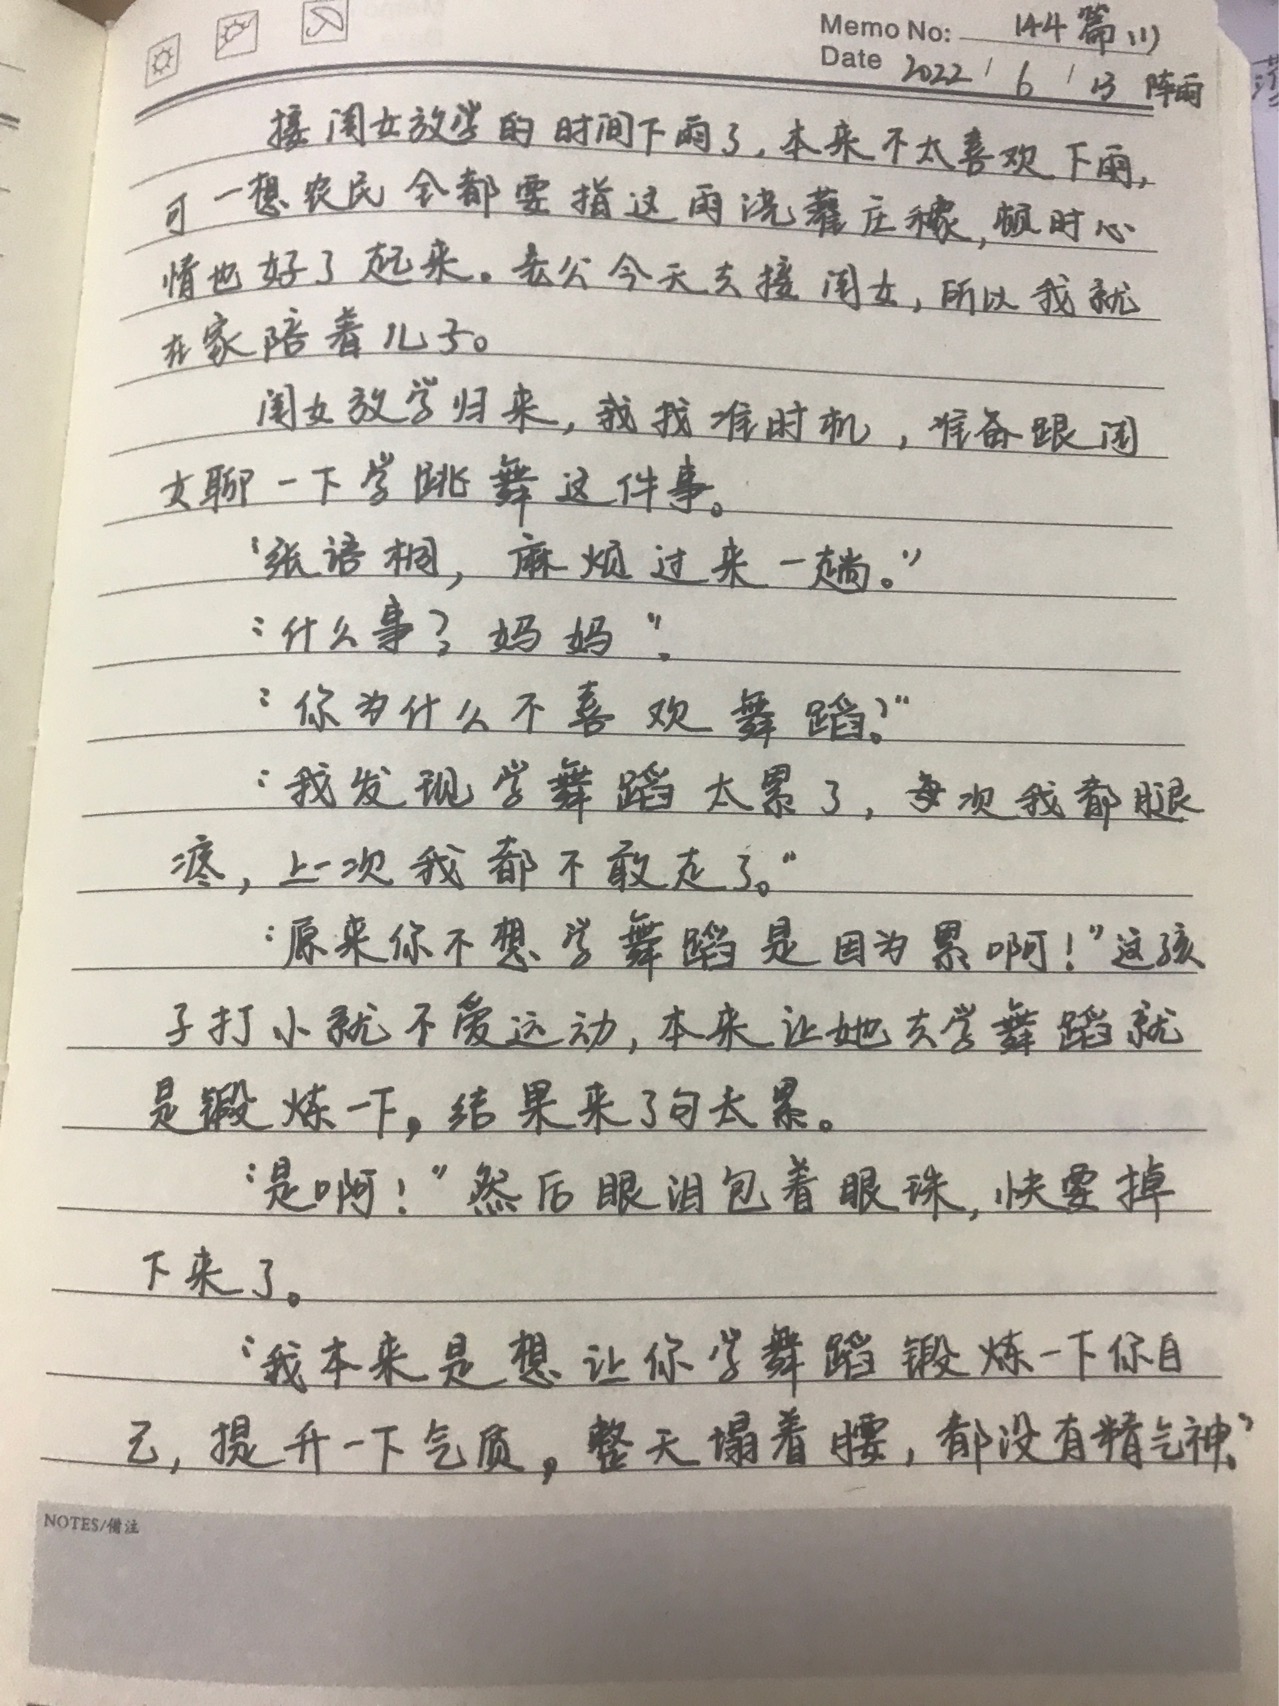 Memo No: 144篇(1)
Date 2022 / 6 / 13 阵雨
接闺女放学的时间下雨了,本来不太喜欢下雨,
可一想农民全都要指这雨浇灌庄稼,顿时心
情也好了起来。老公今天去接闺女,所以我就
在家陪着儿子。
闺女放学归来,我找准时机,准备跟闺
女聊一下学跳舞这件事。
“张语桐,麻烦过来一趟。”
“什么事?妈妈”。
“你为什么不喜欢舞蹈?”
“我发现学舞蹈太累了,每次我都腿
疼,上一次我都不敢走了。”
“原来你不想学舞蹈是因为累啊!”这孩
子打小就不爱运动,本来让她去学舞蹈就
是锻炼一下,结果来了句太累。
“是啊!”然后眼泪包着眼珠,快要掉
下来了。
“我本来是想让你学舞蹈锻炼一下你自
己,提升一下气质,整天塌着腰,都没有精气神。”
NOTES/备注